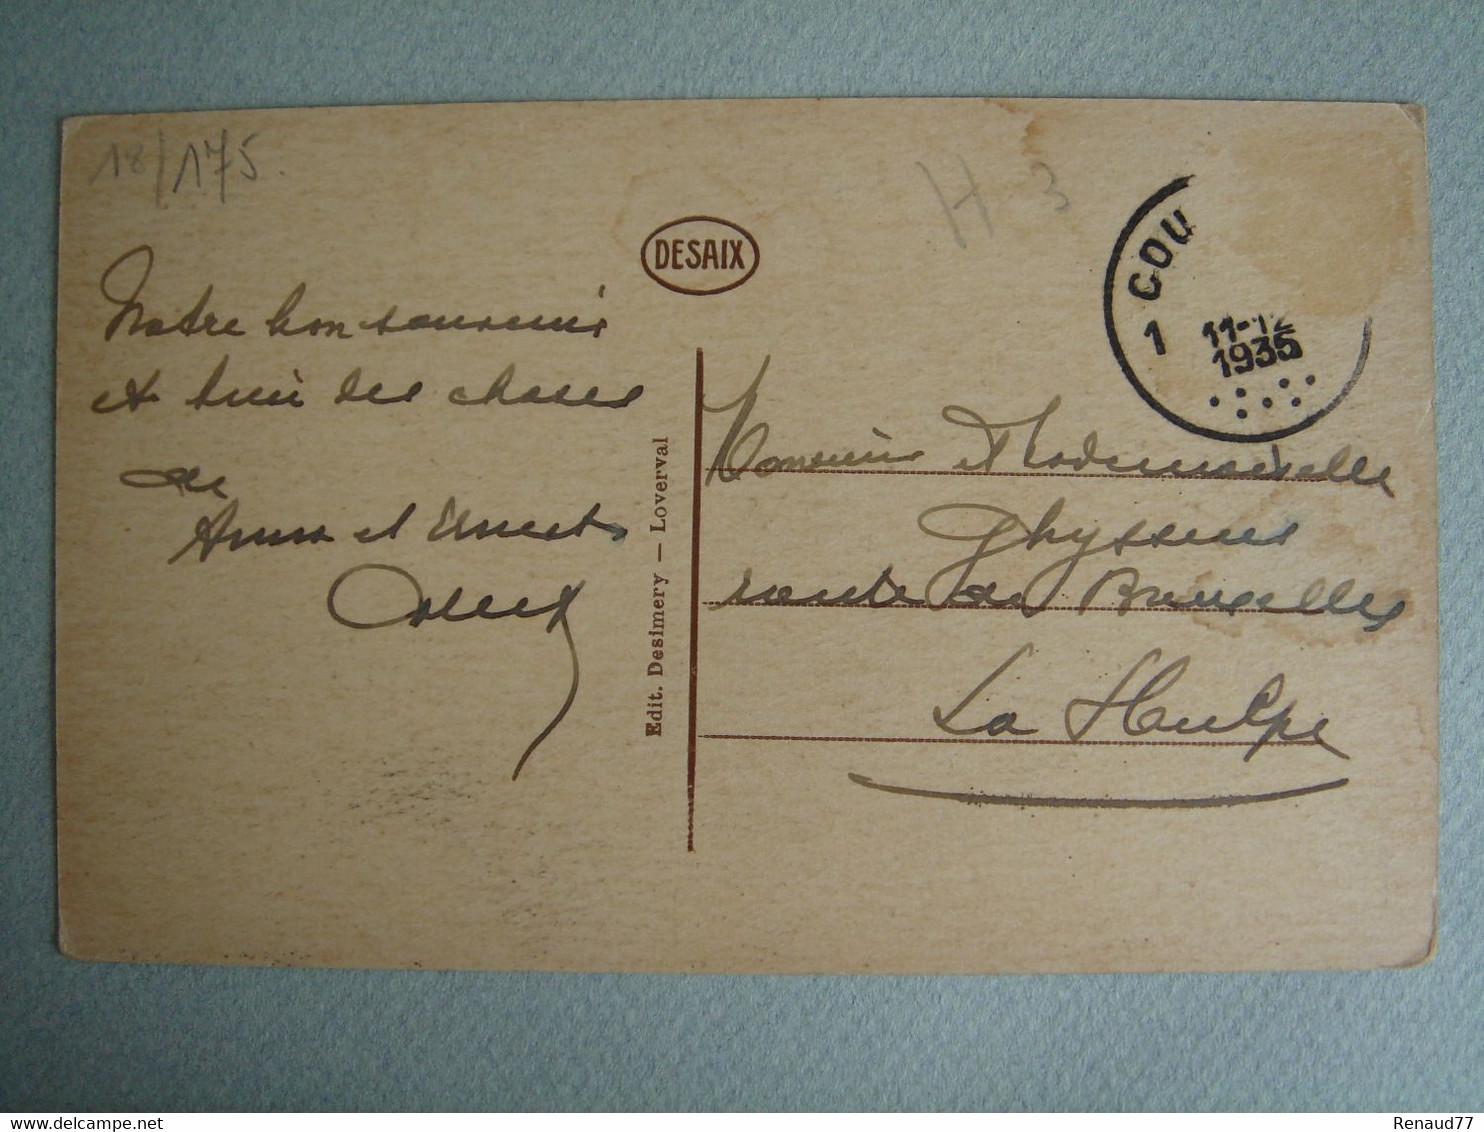 18/175.
H 3
DESAIX
1 COU
11-12
1935
Notre bon souvenir
et bien des choses
de
Anna et Ernest
Edit. Desimery — Loverval
Monsieur et Mademoiselle
Ghyssens
route de Bruxelles
La Hulpe
Renaud77